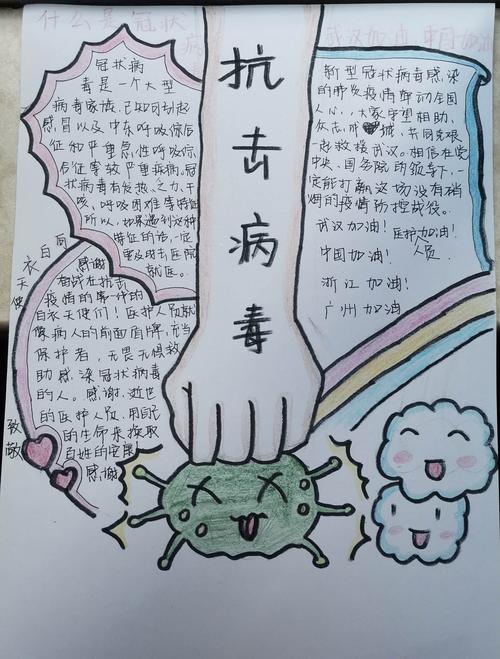 什么是冠状
病
冠状病
毒是一个大型
病毒家族,已知可引起
感冒以及中东呼吸综合
征和严重急性呼吸综
合征等较严重疾病。冠
状病毒有发热、乏力、干
咳、呼吸困难等特征
所以,如果遇到这种
特征的话,一定
要及时去医院
就医。
抗
击
病
毒
武汉加油,中国加油
新型冠状病毒感染
的肺炎疫情牵动全国
人心,大家守望相助,
众志成城,共同克艰
一起救援武汉。相信在党
中央、国务院的领导下,一
定能打赢这场没有硝
烟的疫情防控战役。
武汉加油!医护加油!
人员
中国加油!
浙江加油!
广州加油
白衣
天使
感谢
在抗击
疫情的第一线的
白衣天使们!医护人员就
像病人的前面盾牌,充当
保护者,无畏无惧救
助感染冠状病毒
的人。感谢逝世
的医护人员,用自己
的生命来换取
百姓的安康
感谢
致
敬